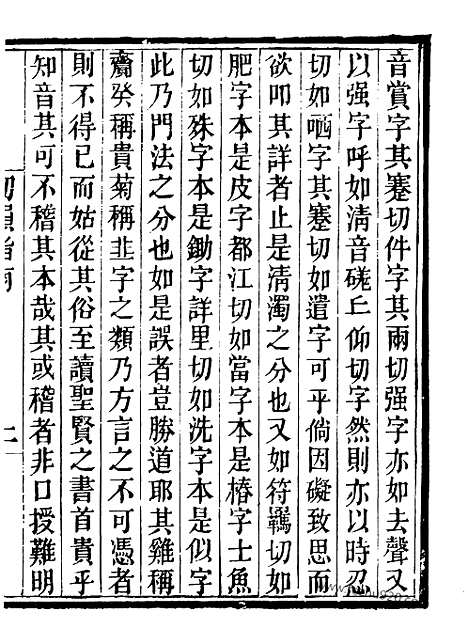 音賞字其蹇切件字其兩切强字亦如去聲又
以强字呼如清音磋丘仰切字然則亦以時忍
切如哂字其蹇切如遣字可乎倘因礙致思而
欲叩其詳者止是清濁之分也又如符羈切如
肥字本是皮字都江切如當字本是樁字士魚
切如殊字本是鋤字詳里切如洗字本是似字
此乃門法之分也如是誤者豈勝道耶其雞稱
齎癸稱貴菊稱韭字之類乃方言之不可憑者
則不得已而姑從其俗至讀聖賢之書首貴乎
知音其可不稽其本哉其或稽者非口授難明
切韻指南